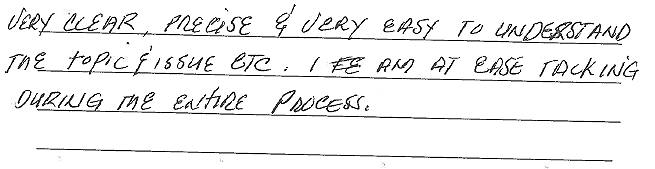 VERY CLEAR, PRECISE & VERY EASY TO UNDERSTAND
THE TOPIC & ISSUE ETC. I AM AT EASE TALKING
DURING THE ENTIRE PROCESS.